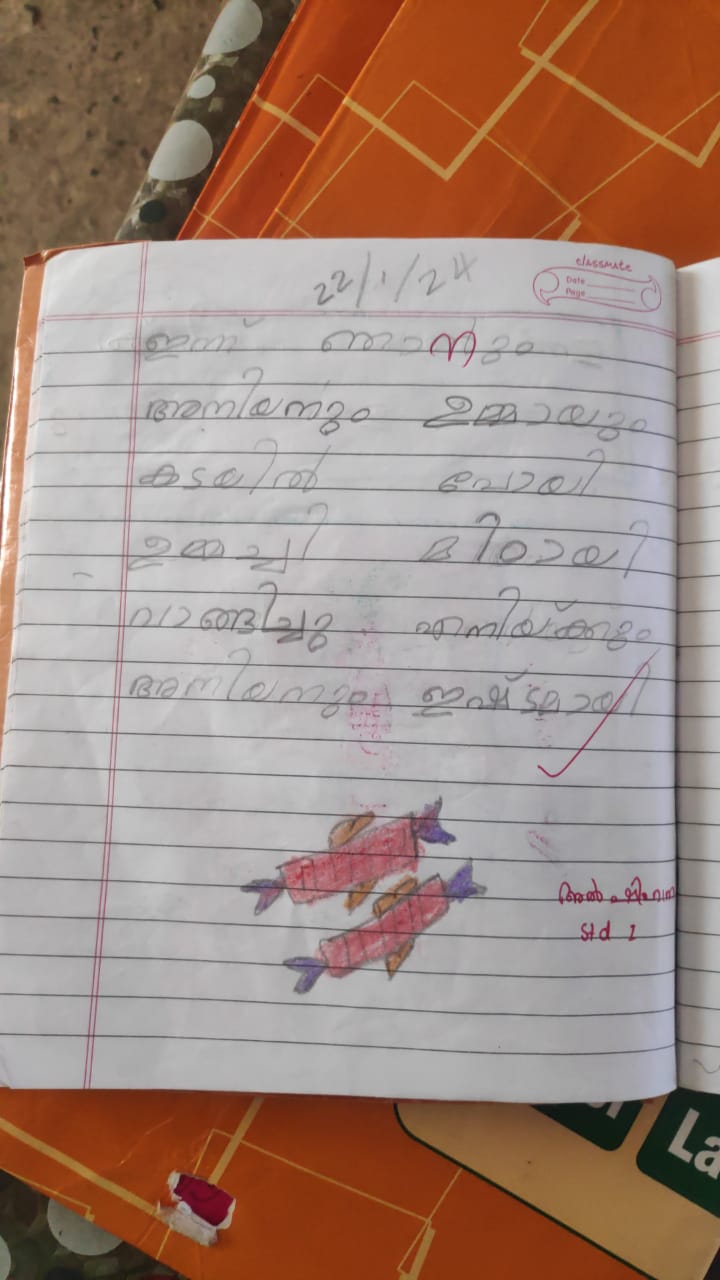 22/1/24
classmate
Date
Page
ഇന്ന് ഞാനും
അനിയനും ഉമ്മായും
കടയിൽ പോയി
ഉമ്മച്ചി മിഠായി
വാങ്ങിച്ചു എനിയ്ക്കും
അനിയനും ഇഷ്ടമായി
Std 1
La